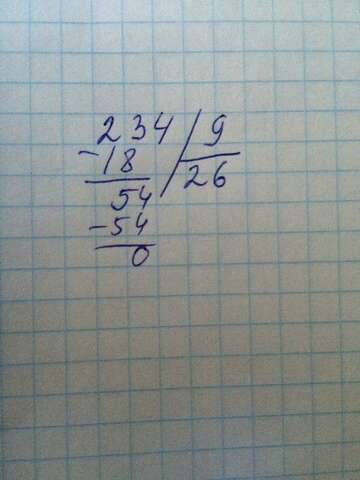 234 / 9
-18 / 26
54
-54
0